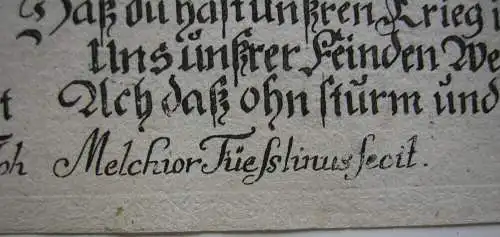 Daß du hast Unßren Krieg i
Uns ünßrer Feinden We
t Ach daß ohn sturm und
ph Melchior Füesslinus fecit.